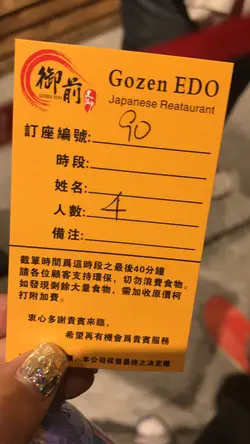 御前
GOZEN EDO
Gozen EDO
Japanese Reataurant
訂座編號: 90
時段:
姓名:
人數: 4
備注:
截單時間爲這時段之最後40分鐘
請各位顧客支持環保，切勿浪費食物。
如發現剩餘大量食物，需加收原價柯
打附加費。
衷心多謝貴賓來臨，
希望再有機會爲貴賓服務
，本公司保留最終之決定權